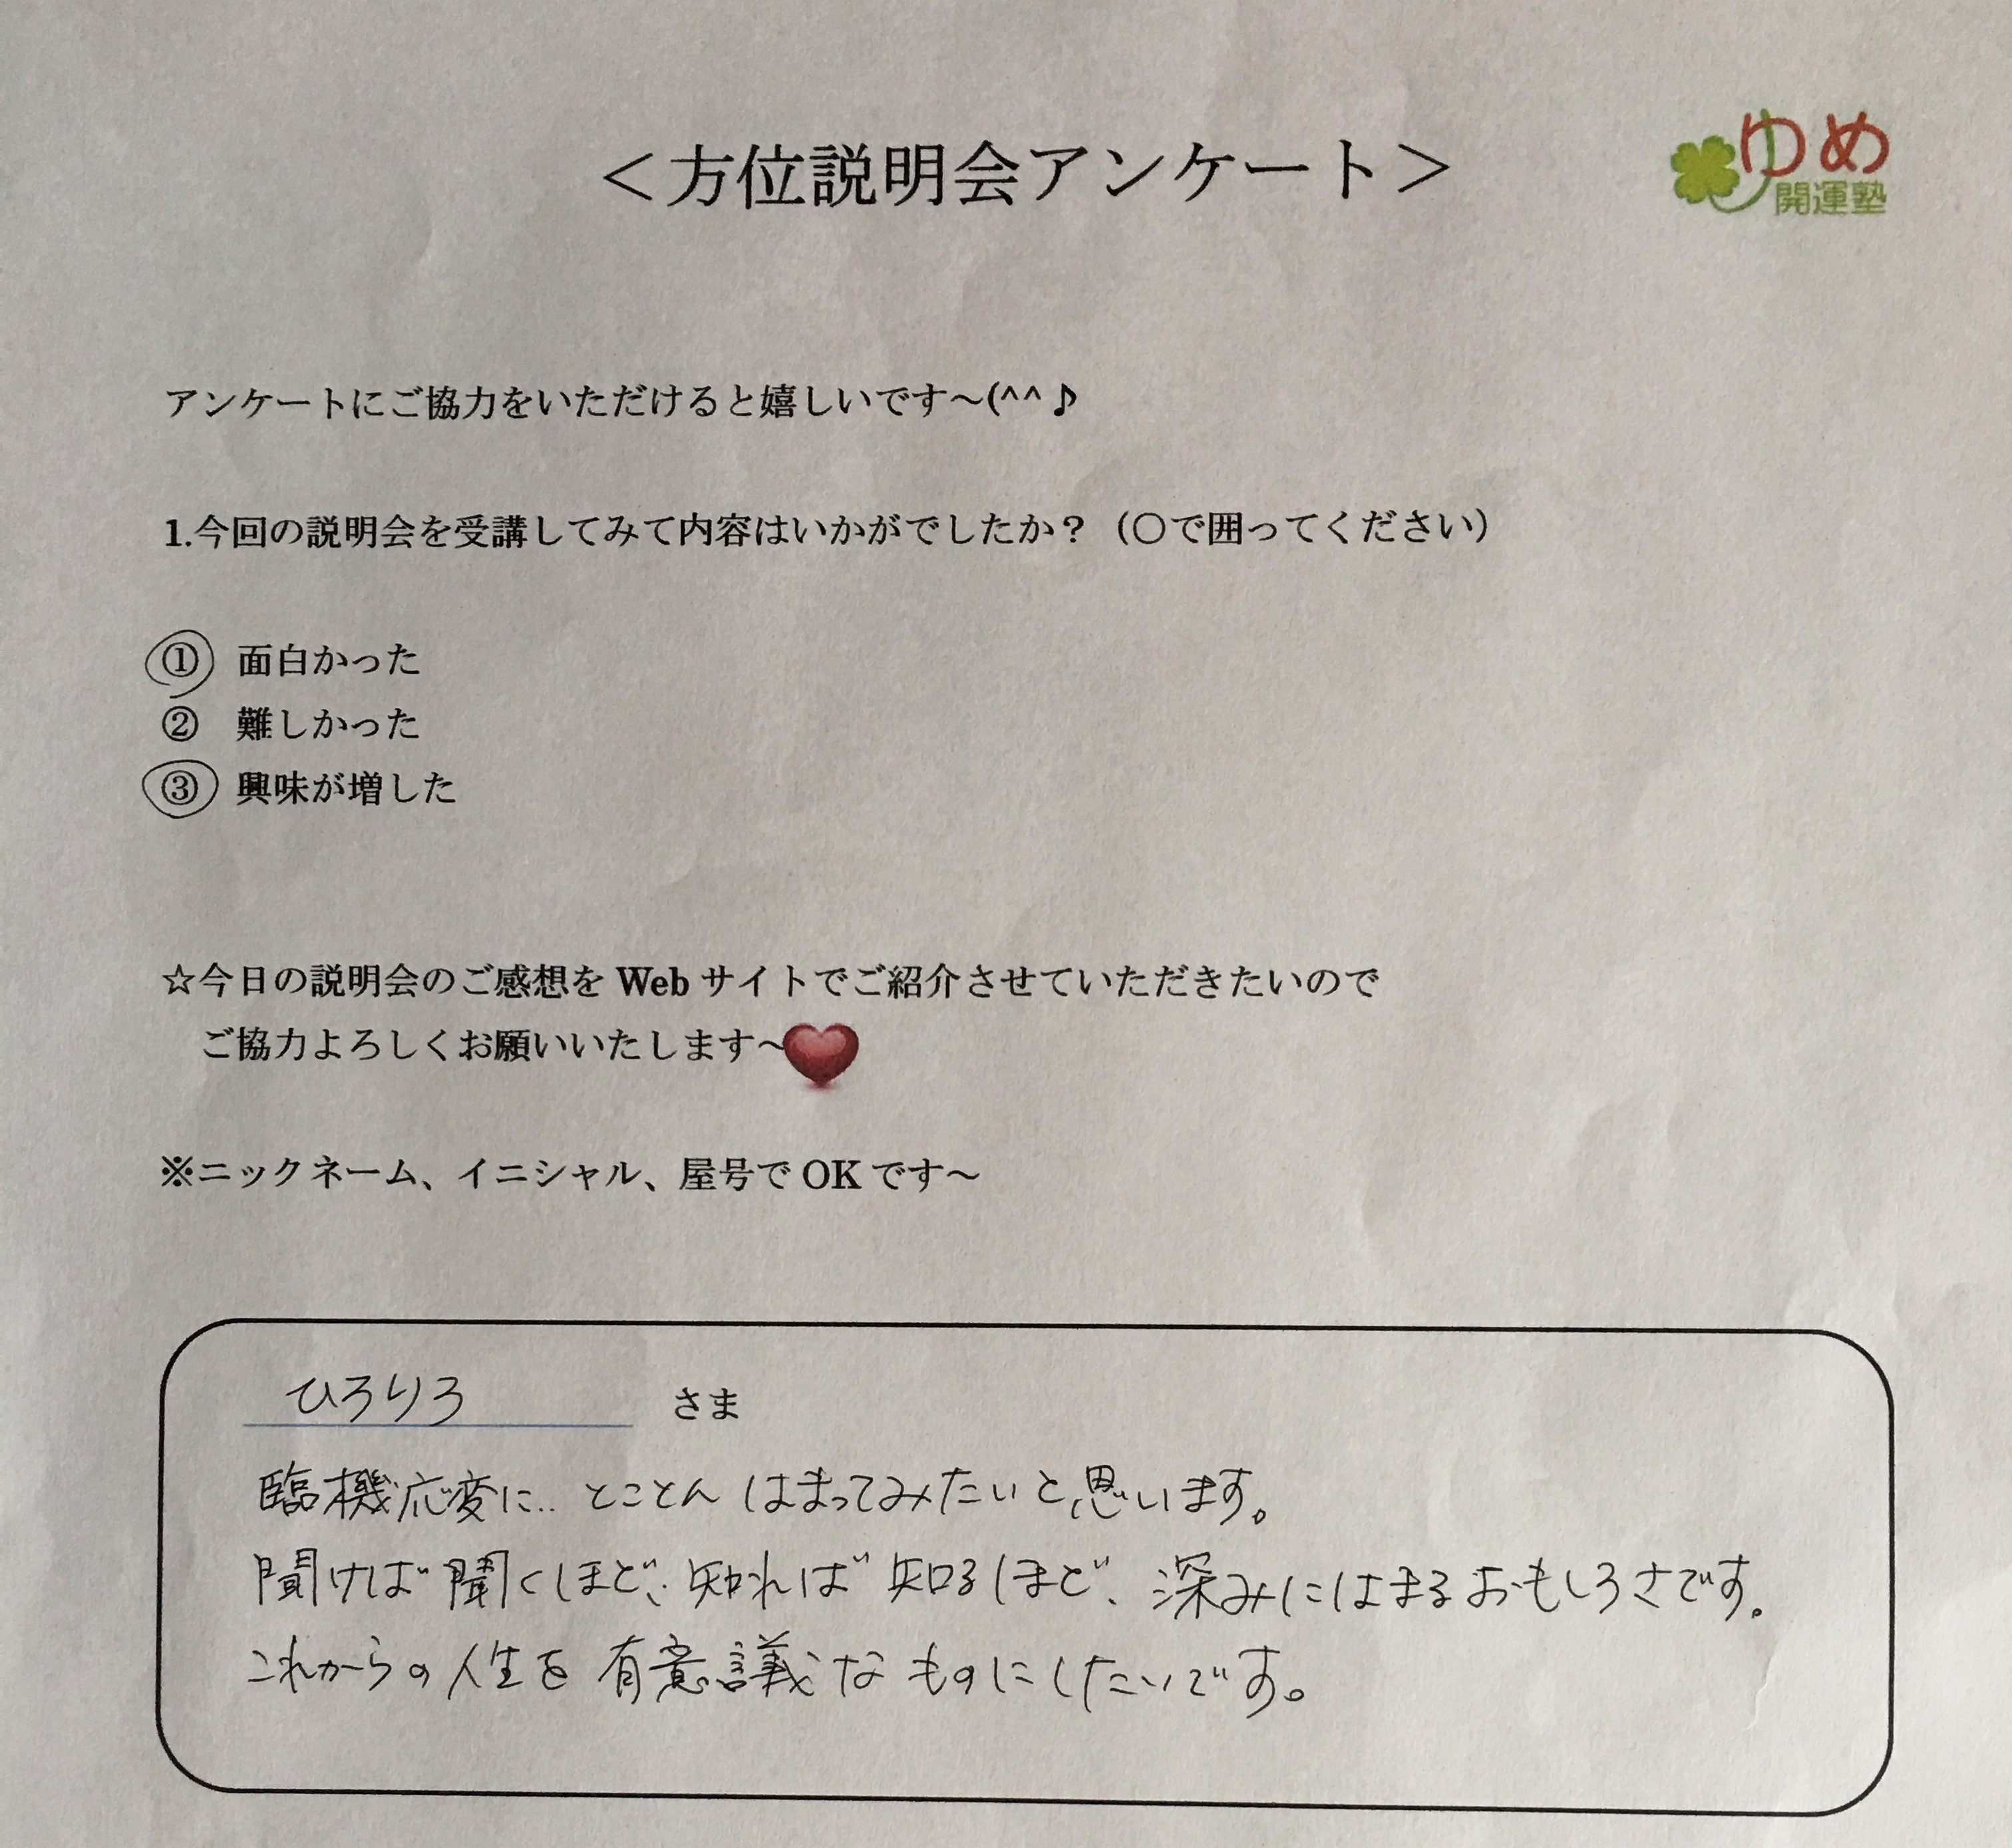 ＜方位説明会アンケート＞
ゆめ
開運塾
アンケートにご協力をいただけると嬉しいです～(^^♪
1.今回の説明会を受講してみて内容はいかがでしたか？（〇で囲ってください）
① 面白かった
② 難しかった
③ 興味が増した
☆今日の説明会のご感想を Web サイトでご紹介させていただきたいので
ご協力よろしくお願いいたします～
※ニックネーム、イニシャル、屋号で OK です～
ひろりろ さま
臨機応変に.. とことん はまってみたいと思います。
聞けば聞くほど、知れば知るほど、深みにはまるおもしろさです。
これからの人生を有意議なものにしたいです。